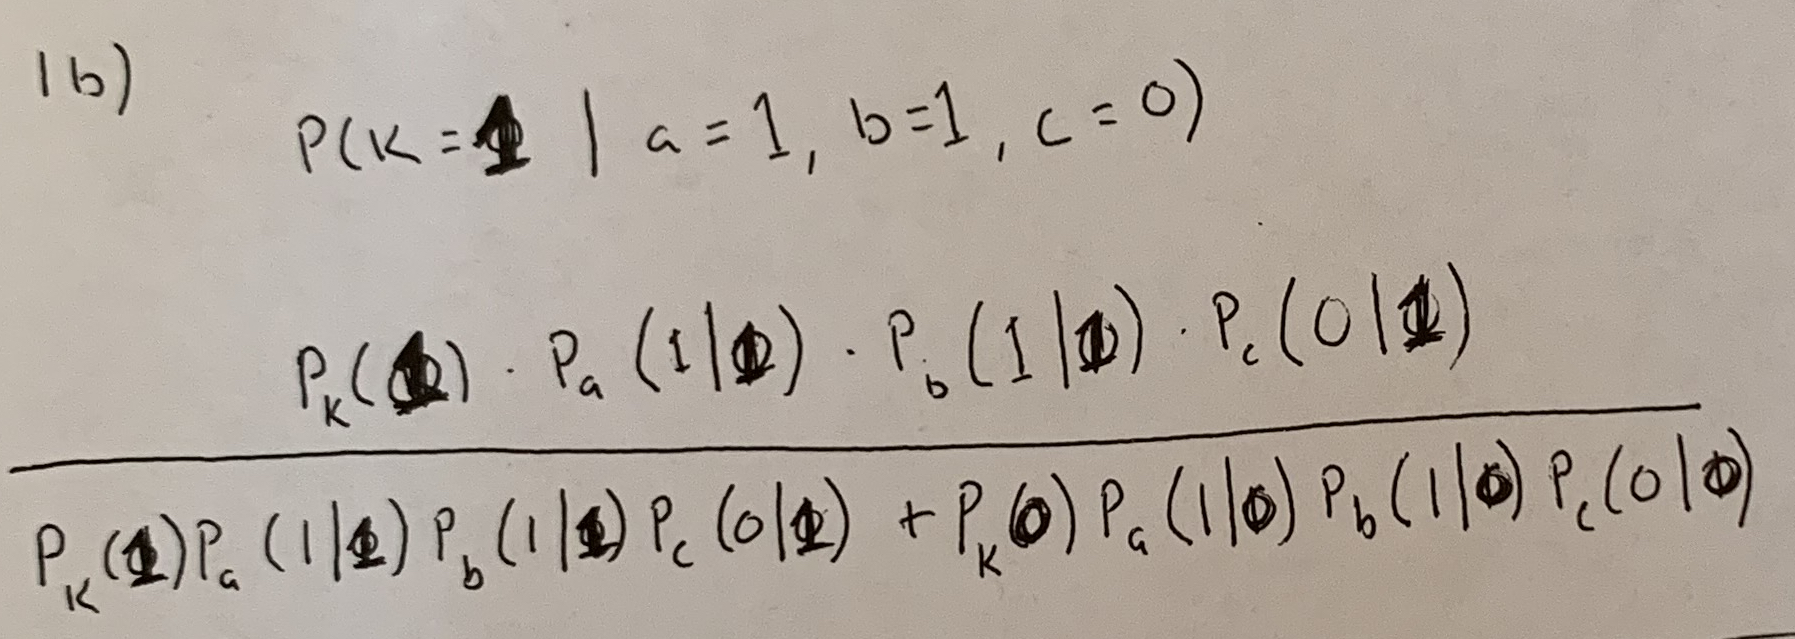 1b)
P(K=1 | a=1, b=1, c=0)
P_K(1) · P_a(1|1) · P_b(1|1) · P_c(0|1)
P_K(1)P_a(1|1)P_b(1|1)P_c(0|1) + P_K(0)P_a(1|0)P_b(1|0)P_c(0|0)